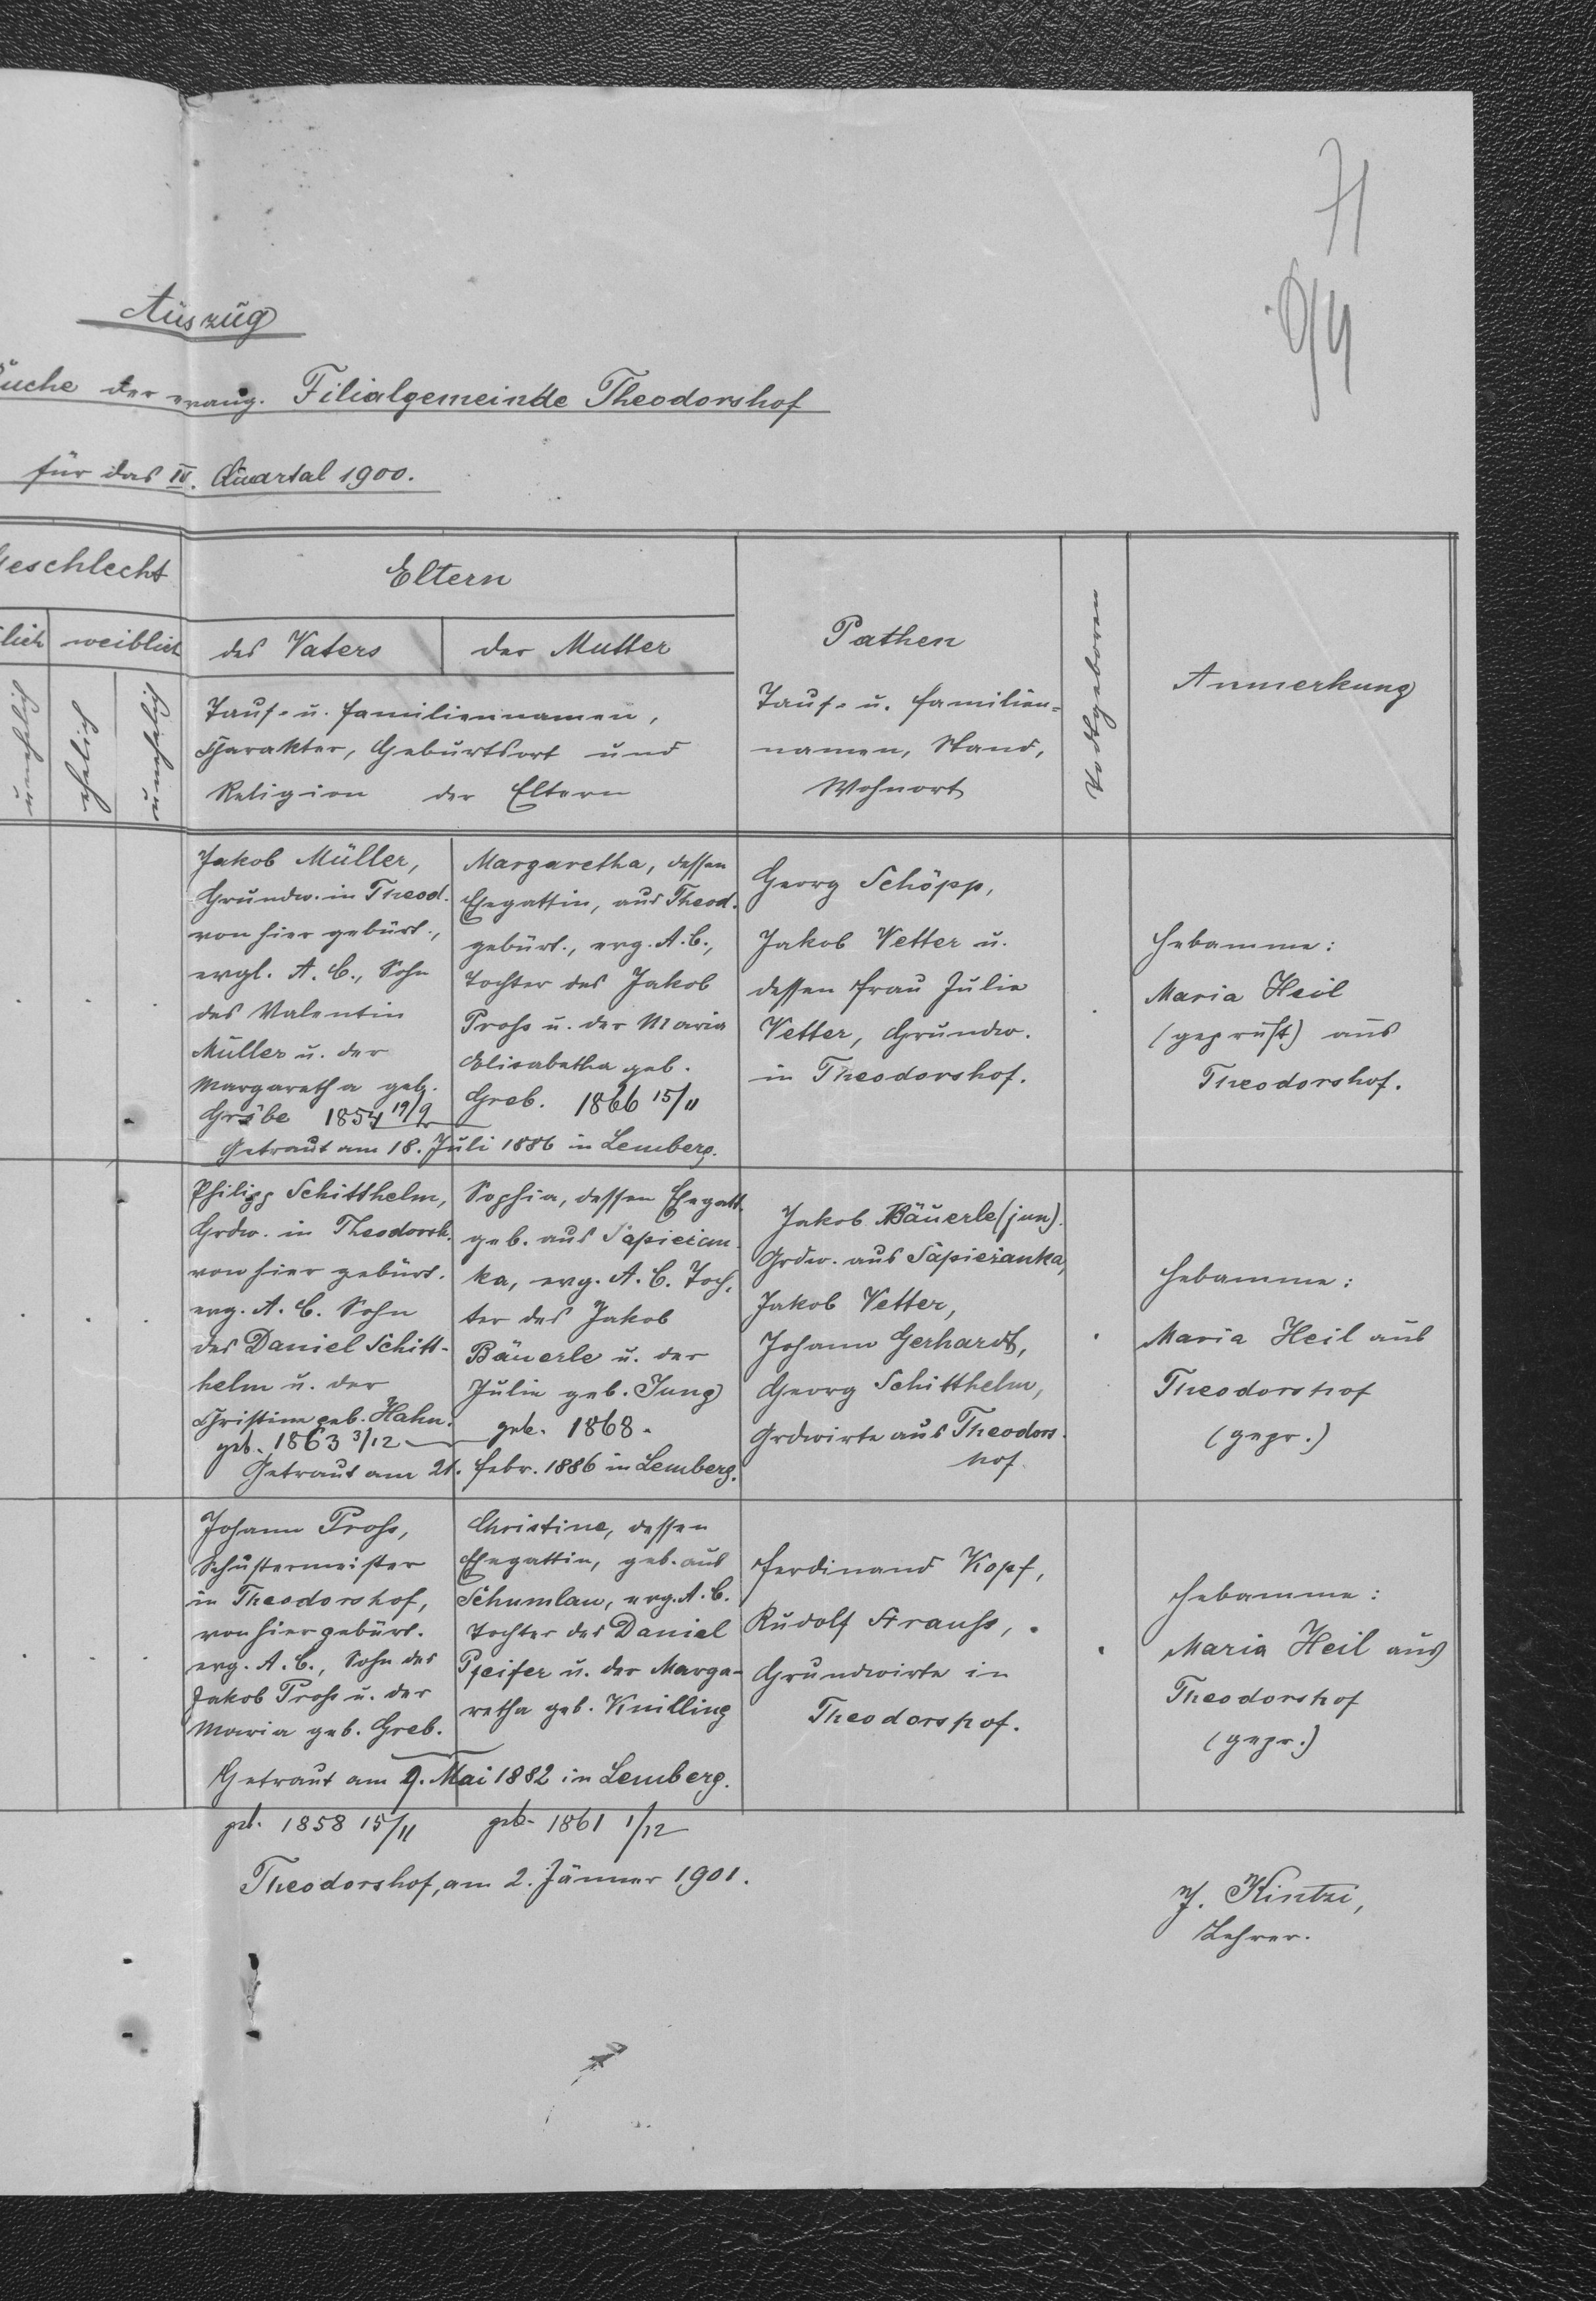 71
94
Auszug
der evang. Filialgemeinde Theodorshof
für das IV. Quartal 1900.
Geschlecht
weiblich
unehelich
ehelich
unehelich
Eltern
des Vaters
der Mutter
Tauf- u. Familiennamen,
Charakter, Geburtsort und
Religion der Eltern
Pathen
Tauf- u. Familien-
namen, Stand,
Wohnort
Todtgeboren
Anmerkung
Jakob Müller,
Grundw. in Theod.
von hier gebürt.,
evgl. A. C., Sohn
des Valentin
Müller u. der
Margaretha geb.
Gröbe 1854 19/9
Margaretha, dessen
Ehegattin, aus Theod.
gebürt., evg. A. C.,
Tochter des Jakob
Proß u. der Maria
Elisabetha geb.
Greb. 1866 15/11
Getraut am 18. Juli 1886 in Lemberg.
Georg Schöpp,
Jakob Vetter u.
dessen Frau Julie
Vetter, Grundw.
in Theodorshof.
Hebamme:
Maria Heil
(geprüft) aus
Theodorshof.
Philipp Schitthelm,
Grdw. in Theodorsh.
von hier gebürt.
evg. A. C. Sohn
des Daniel Schitt-
helm u. der
Christine geb. Hahn.
geb. 1863 3/12
Sophia, dessen Ehegatt.
geb. aus Sapieżan-
ka, evg. A. C. Toch-
ter des Jakob
Bäuerle u. der
Julie geb. Jung
geb. 1868.
Getraut am 21. Febr. 1886 in Lemberg.
Jakob Bäuerle (jun).
Grdw. aus Sapieżanka,
Jakob Vetter,
Johann Gerhardt,
Georg Schitthelm,
Grdwirte aus Theodors-
hof.
Hebamme:
Maria Heil aus
Theodorshof
(gepr.)
Johann Proß,
Schustermeister
in Theodorshof,
von hier gebürt.
evg. A. C., Sohn des
Jakob Proß u. der
Maria geb. Greb.
Christine, dessen
Ehegattin, geb. aus
Schumlau, evg. A. C.
Tochter des Daniel
Pfeifer u. der Marga-
retha geb. Knilling
Getraut am 9. Mai 1882 in Lemberg.
Ferdinand Kopf,
Rudolf Strauß,
Grundwirte in
Theodorshof.
Hebamme:
Maria Heil aus
Theodorshof
(gepr.)
geb. 1858 15/11 geb. 1861 1/12
Theodorshof, am 2. Jänner 1901.
J. Kintzi,
Lehrer.